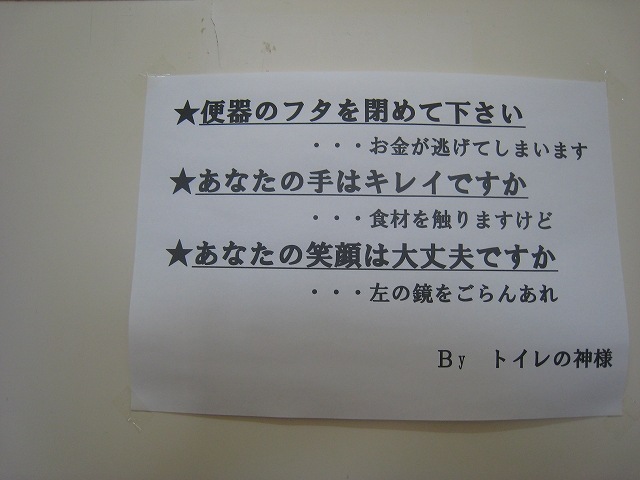 ★便器のフタを閉めて下さい
・・・お金が逃げてしまいます
★あなたの手はキレイですか
・・・食材を触りますけど
★あなたの笑顔は大丈夫ですか
・・・左の鏡をごらんあれ
By トイレの神様